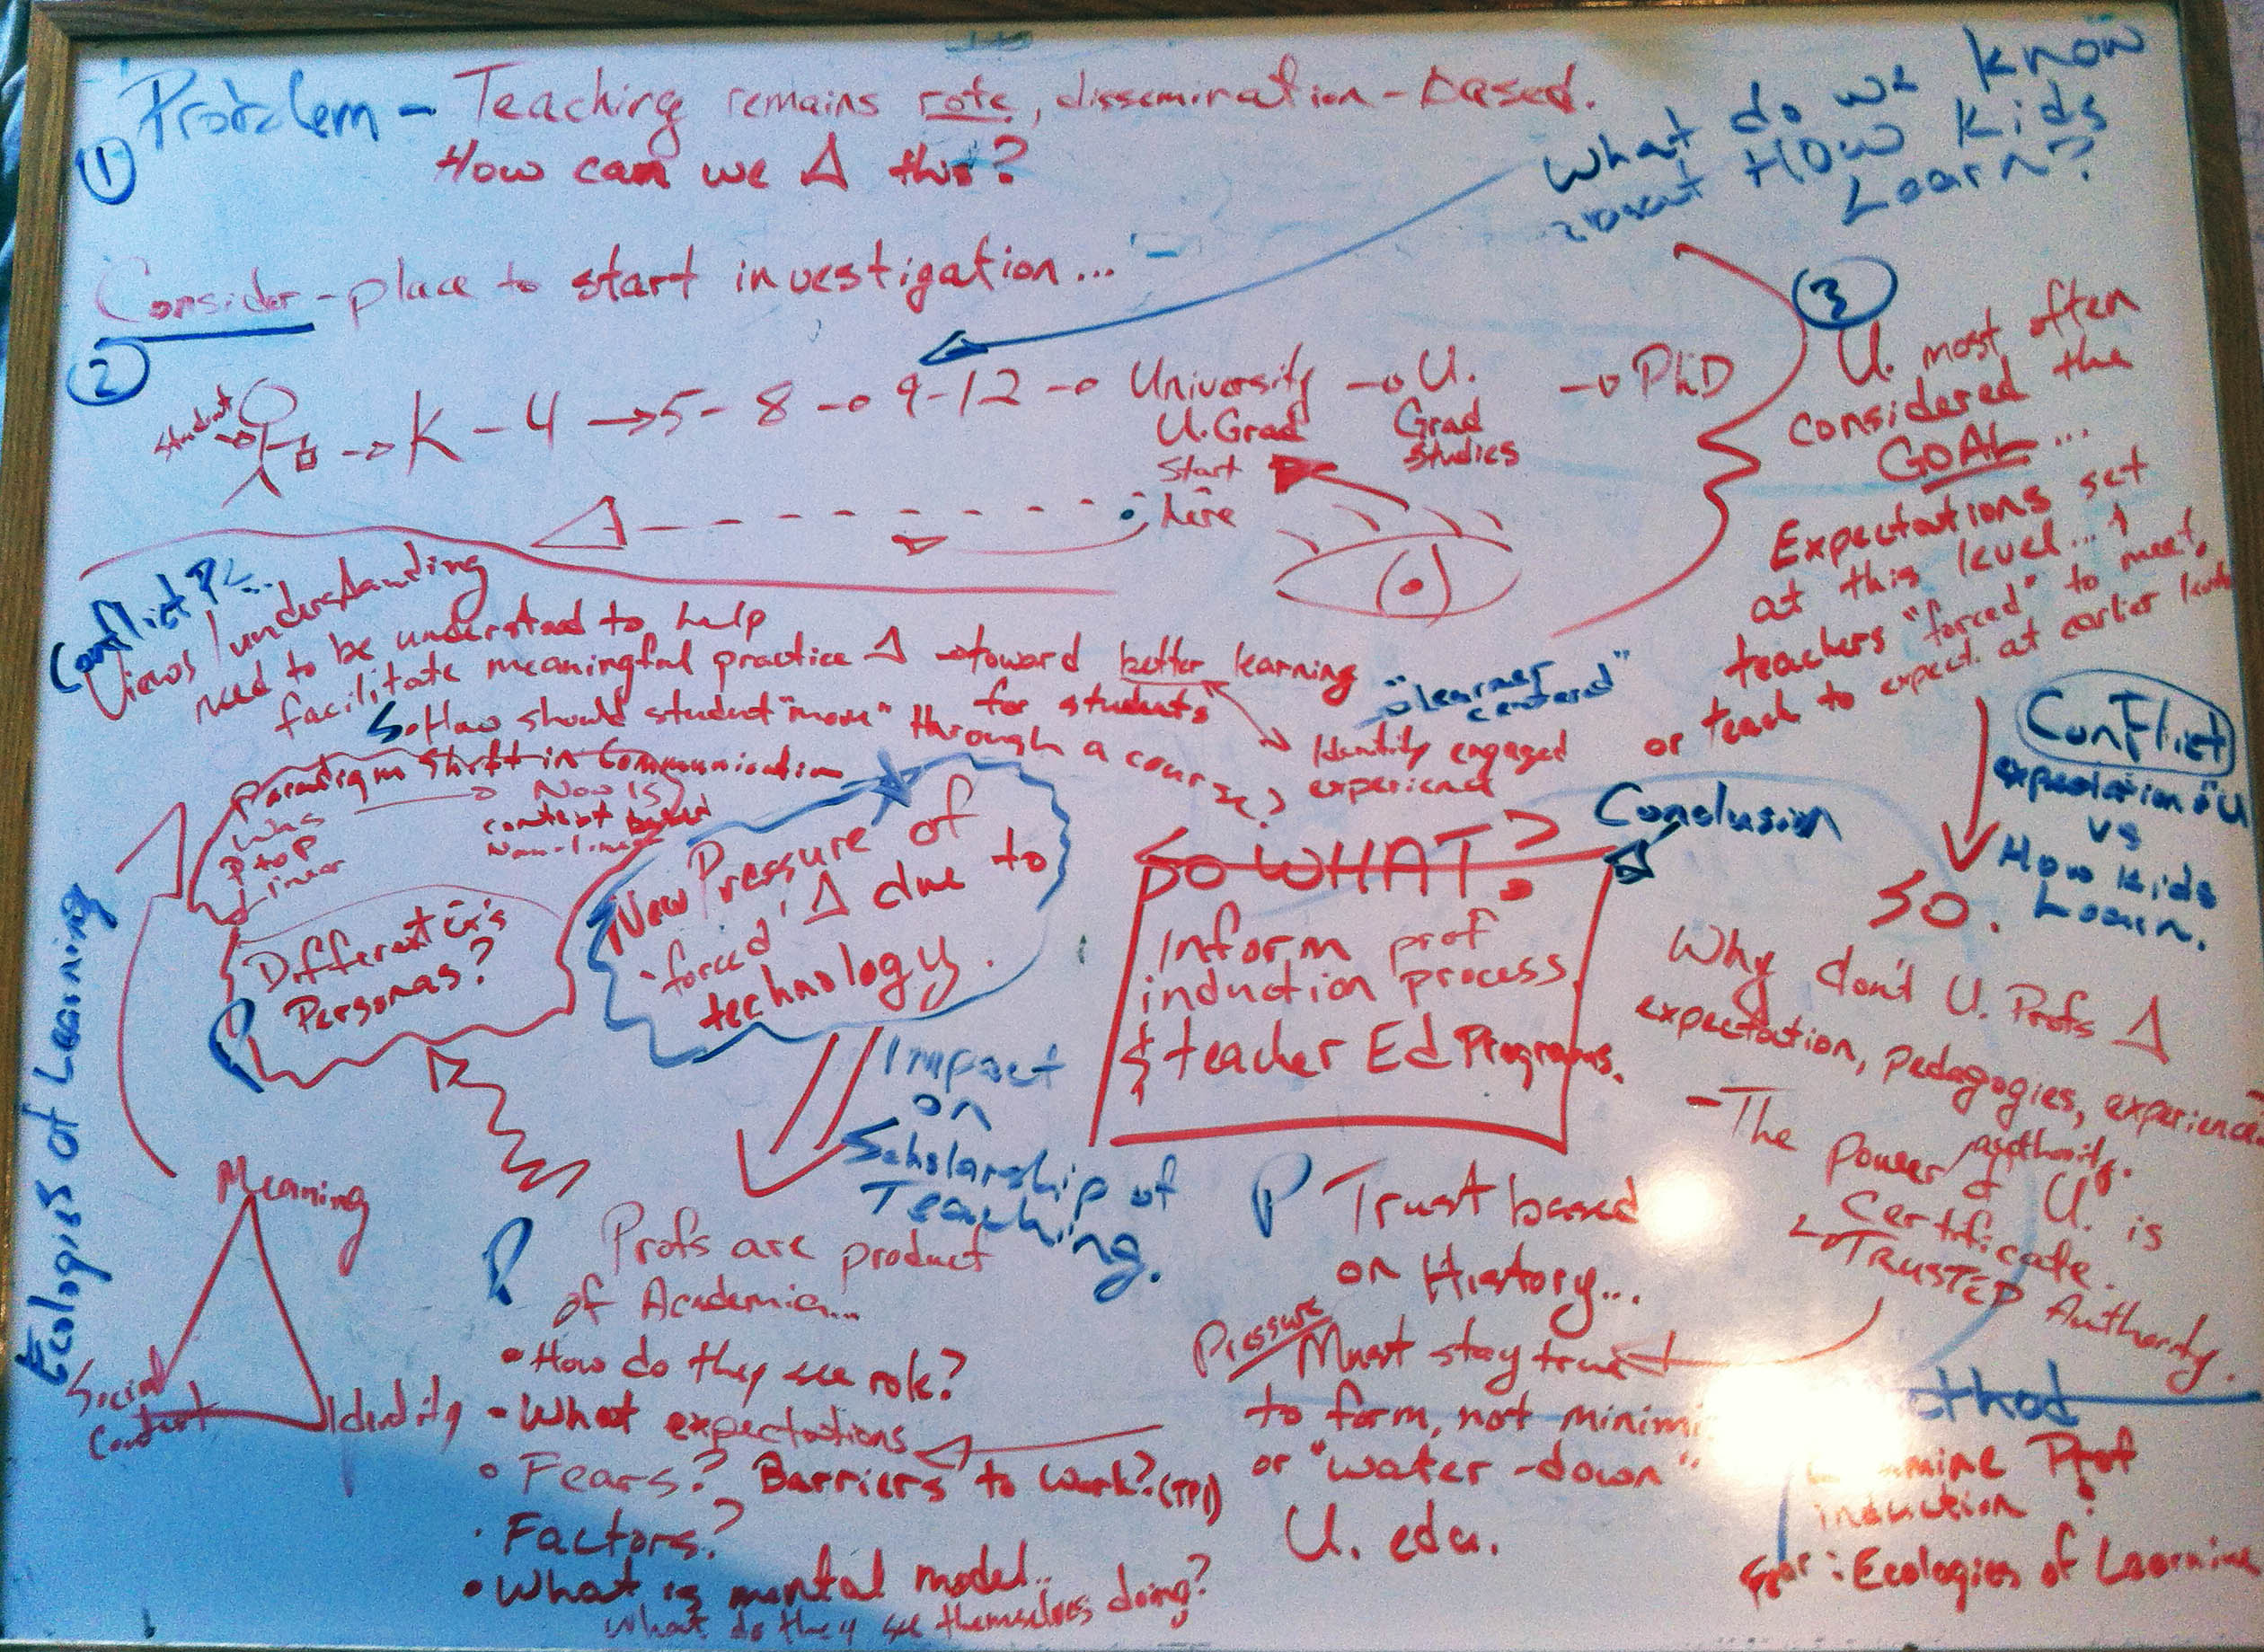 ① Problem - Teaching remains rote, dissemination-based.
How can we Δ this?
What do we know
about How kids
Learn?
Consider - place to start investigation...
②
student
K-4 → 5-8 → 9-12 → University → U. → PhD
U.Grad Grad
Start Studies
here
③
U. most often
considered the
GOAL...
Expectations set
at this level...
teachers "forced" to meet,
or teach to expect. at earlier levels
Conflict
expectation
vs
How kids
Learn.
Conflict
Views/understanding
need to be understood to help
facilitate meaningful practice Δ → toward better learning
for students
"learner
centered"
Identity engaged
experience
So How should student "move" through a course?
Paradigm Shift in Communication
Was
P to P
Linear
Now is
context based
Non-linear
Different
Personas?
New Pressure of
'forced' Δ due to
technology.
Impact
on
Scholarship of
Teaching.
Conclusion
SO WHAT?
Inform prof
induction process
& teacher Ed Programs.
SO.
Why don't U. Profs Δ
expectation, pedagogies, experience
- The power & authority.
U. is
Certificate.
TRUSTED Authority.
Ecologies of Learning
Meaning
Social
Context
Identity
P Profs are product
of Academia...
• How do they see role?
• What expectations
• Fears? Barriers to work? (TPI)
• Factors?
• What is mental model..
What do they see themselves doing?
P Trust based
on History...
Pressure
Must stay true
to form, not
or "water-down"
U. edu.
Prof
induction
for: Ecologies of Learning